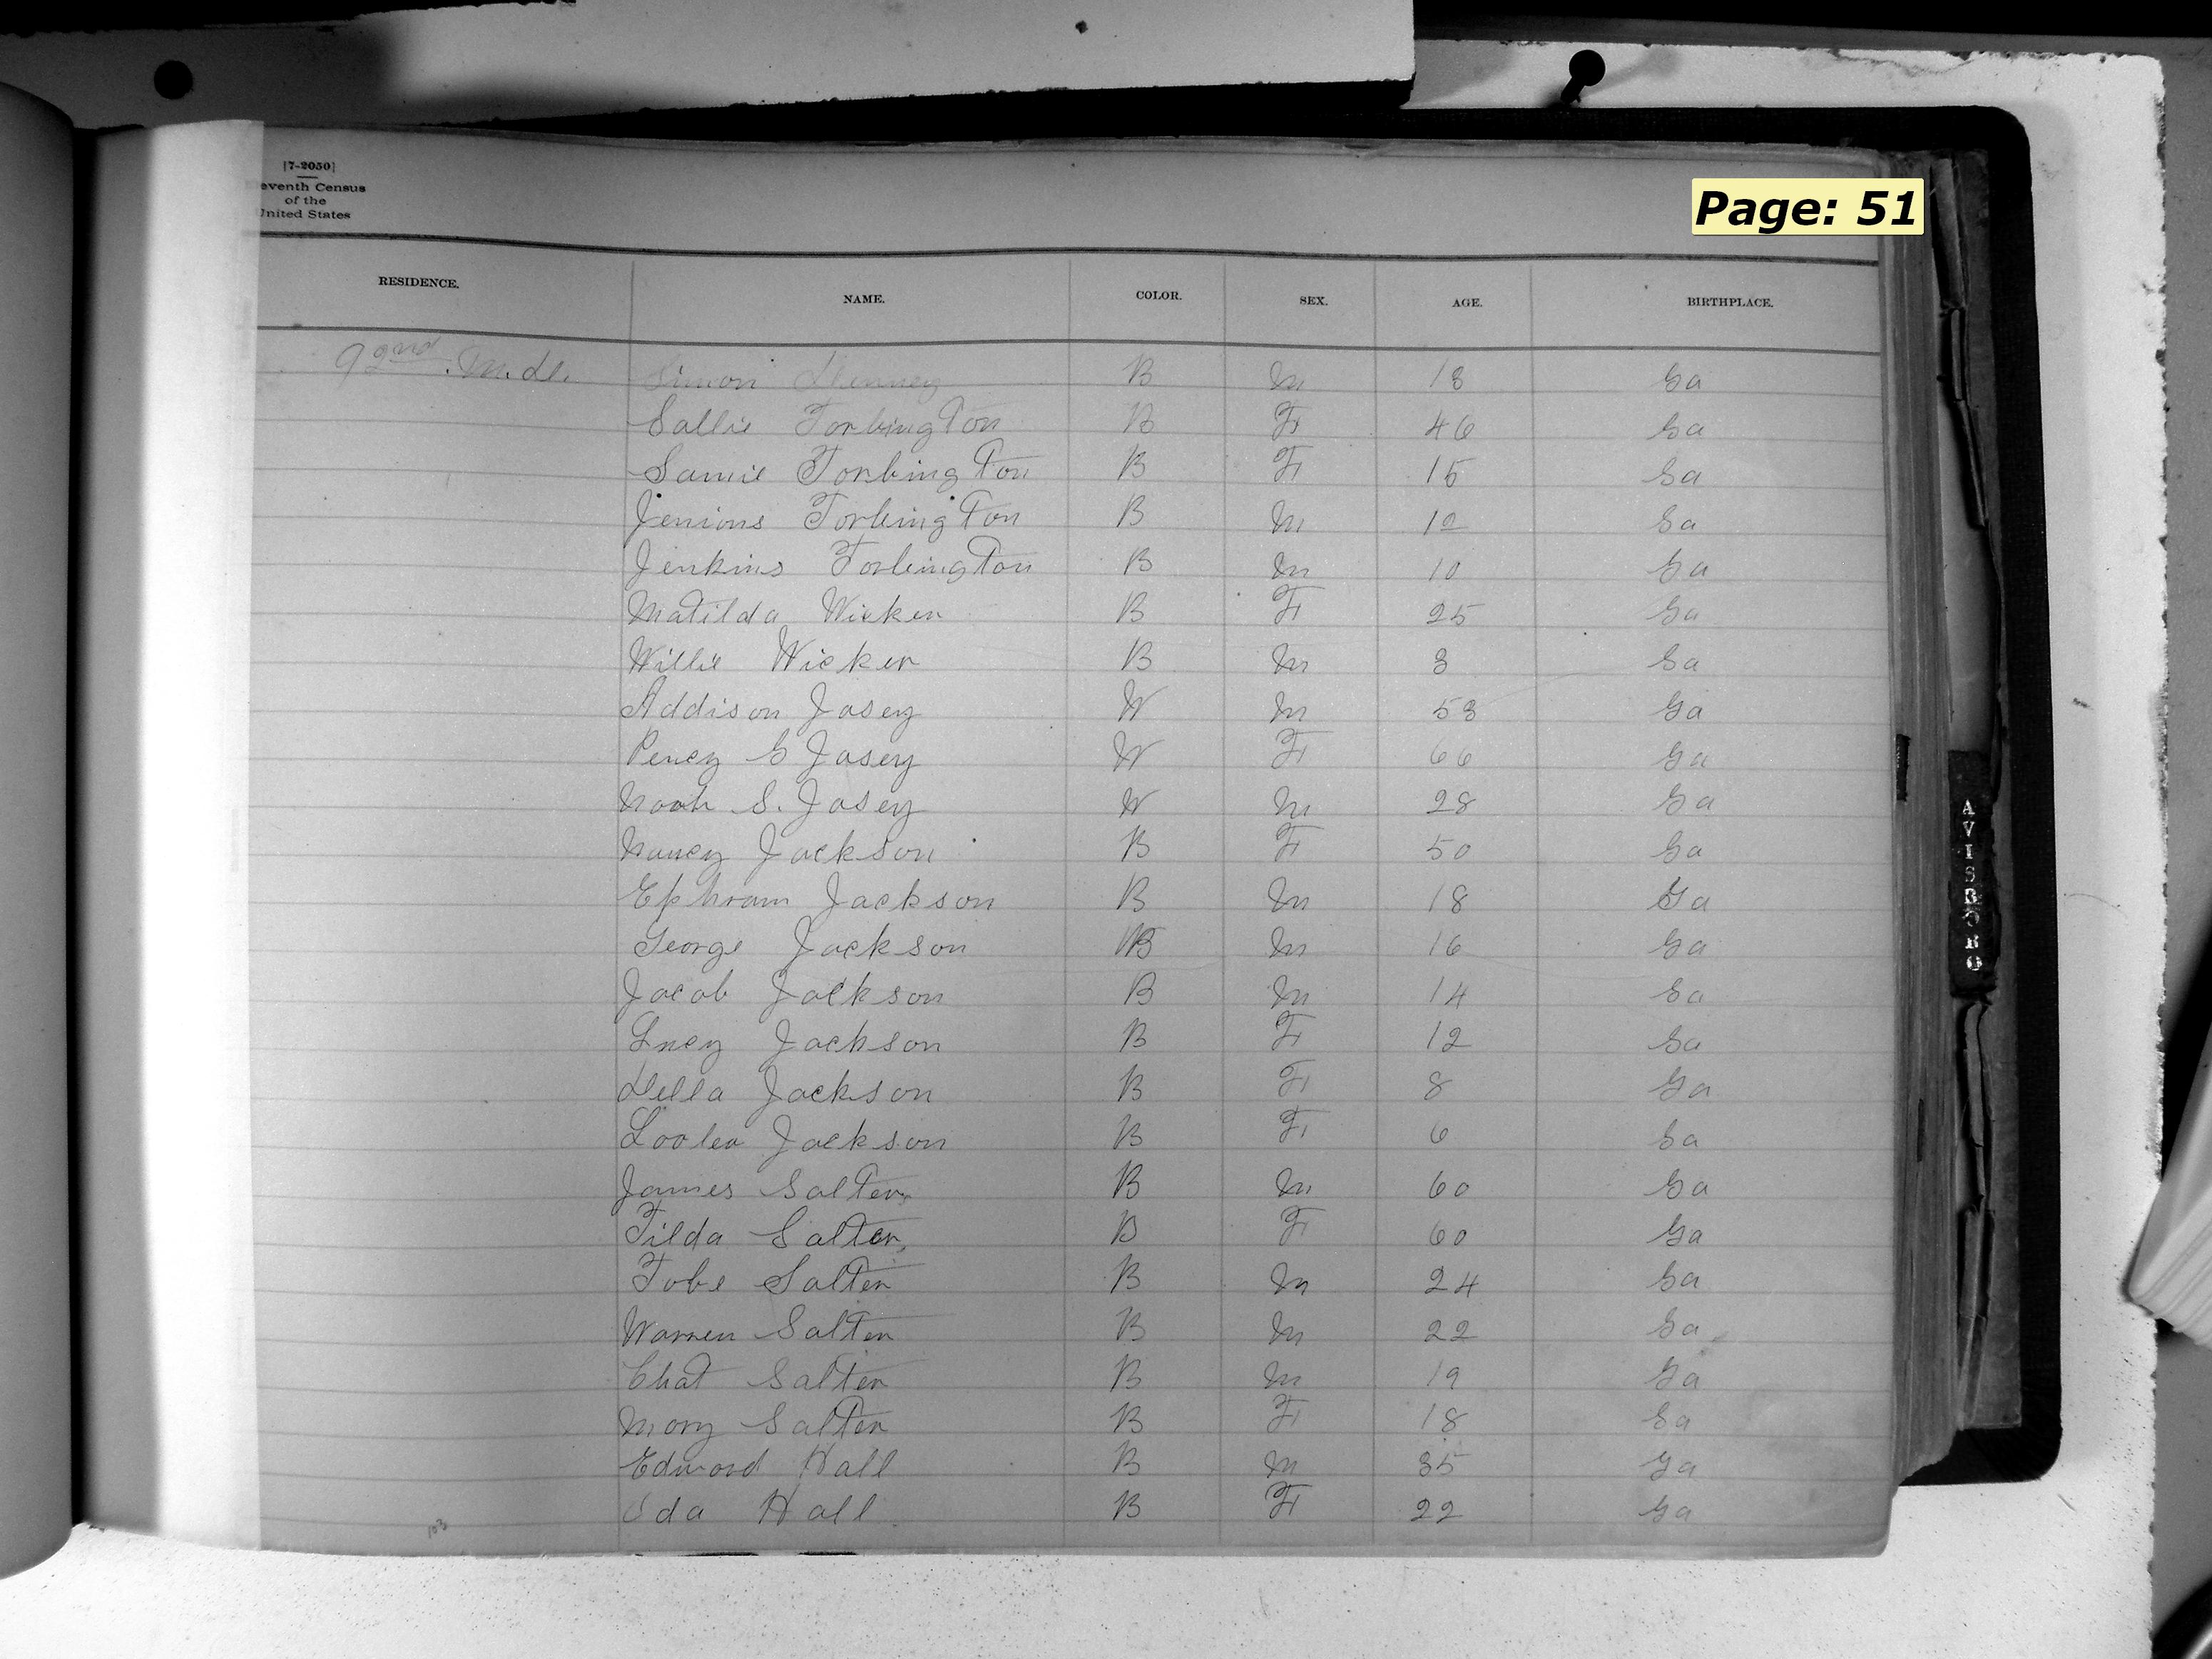 [7-2050]
eventh Census
of the
United States
Page: 51
RESIDENCE. NAME. COLOR. SEX. AGE. BIRTHPLACE.
92nd M. Simon B M 18 Ga
Sallie Torbington B F 46 Ga
Samie Torbington B F 15 Ga
Jenions Torbington B M 12 Ga
Jenkins Torbington B M 10 Ga
Matilda Wicker B F 25 Ga
Willie Wicker B M 3 Ga
Addison Josey W M 58 Ga
Pency G Josey W F 66 Ga
Noah S. Josey W M 28 Ga
Nancy Jackson B F 50 Ga
Ephram Jackson B M 18 Ga
George Jackson B M 16 Ga
Jacob Jackson B M 14 Ga
Lucy Jackson B F 12 Ga
Della Jackson B F 8 Ga
Loolea Jackson B F 6 Ga
James Salter B M 60 Ga
Tilda Salter B F 60 Ga
Tobe Salter B M 24 Ga
Warren Salter B M 22 Ga
Chat Salter B M 19 Ga
Mary Salter B F 18 Ga
Edward Hall B M 35 Ga
Ida Hall B F 22 Ga
103
AVISBORO